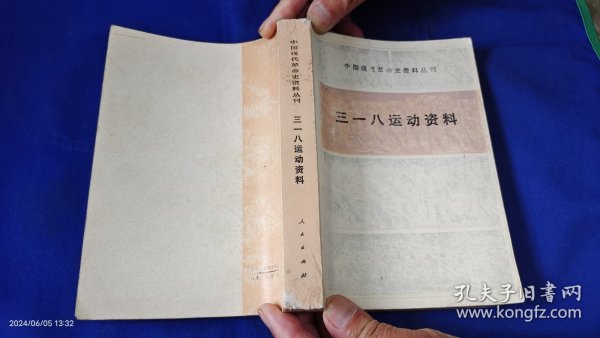 中国现代革命史资料丛刊
三一八运动资料
人民出版社
中国现代革命史资料丛刊
三一八运动资料
孔夫子旧书网
www.kongfz.com
2024/06/05 13:32